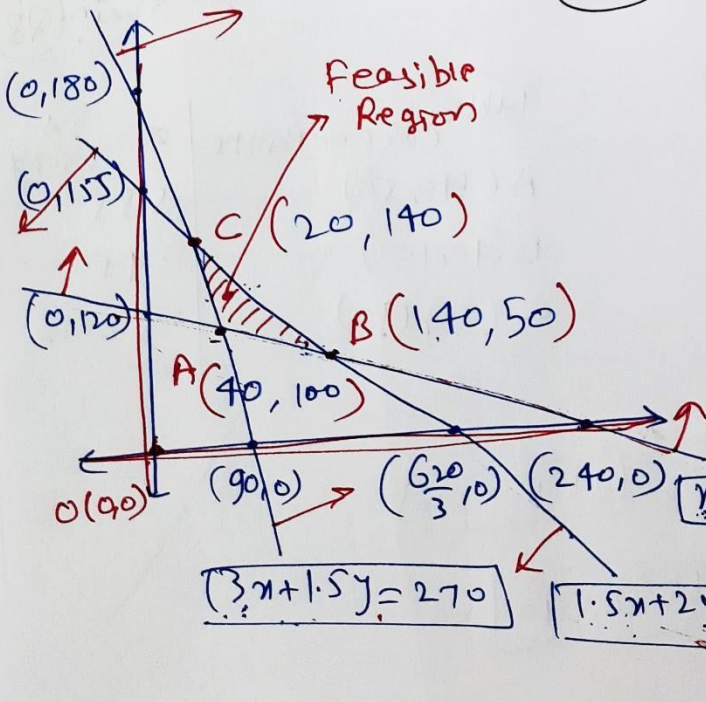 Feasible
Region
(0,180)
(0,155)
C (20,140)
(0,120)
B (140,50)
A (40,100)
O(0,0)
(90,0)
(620/3,0)
(240,0)
(3x+1.5y=270
1.5x+2